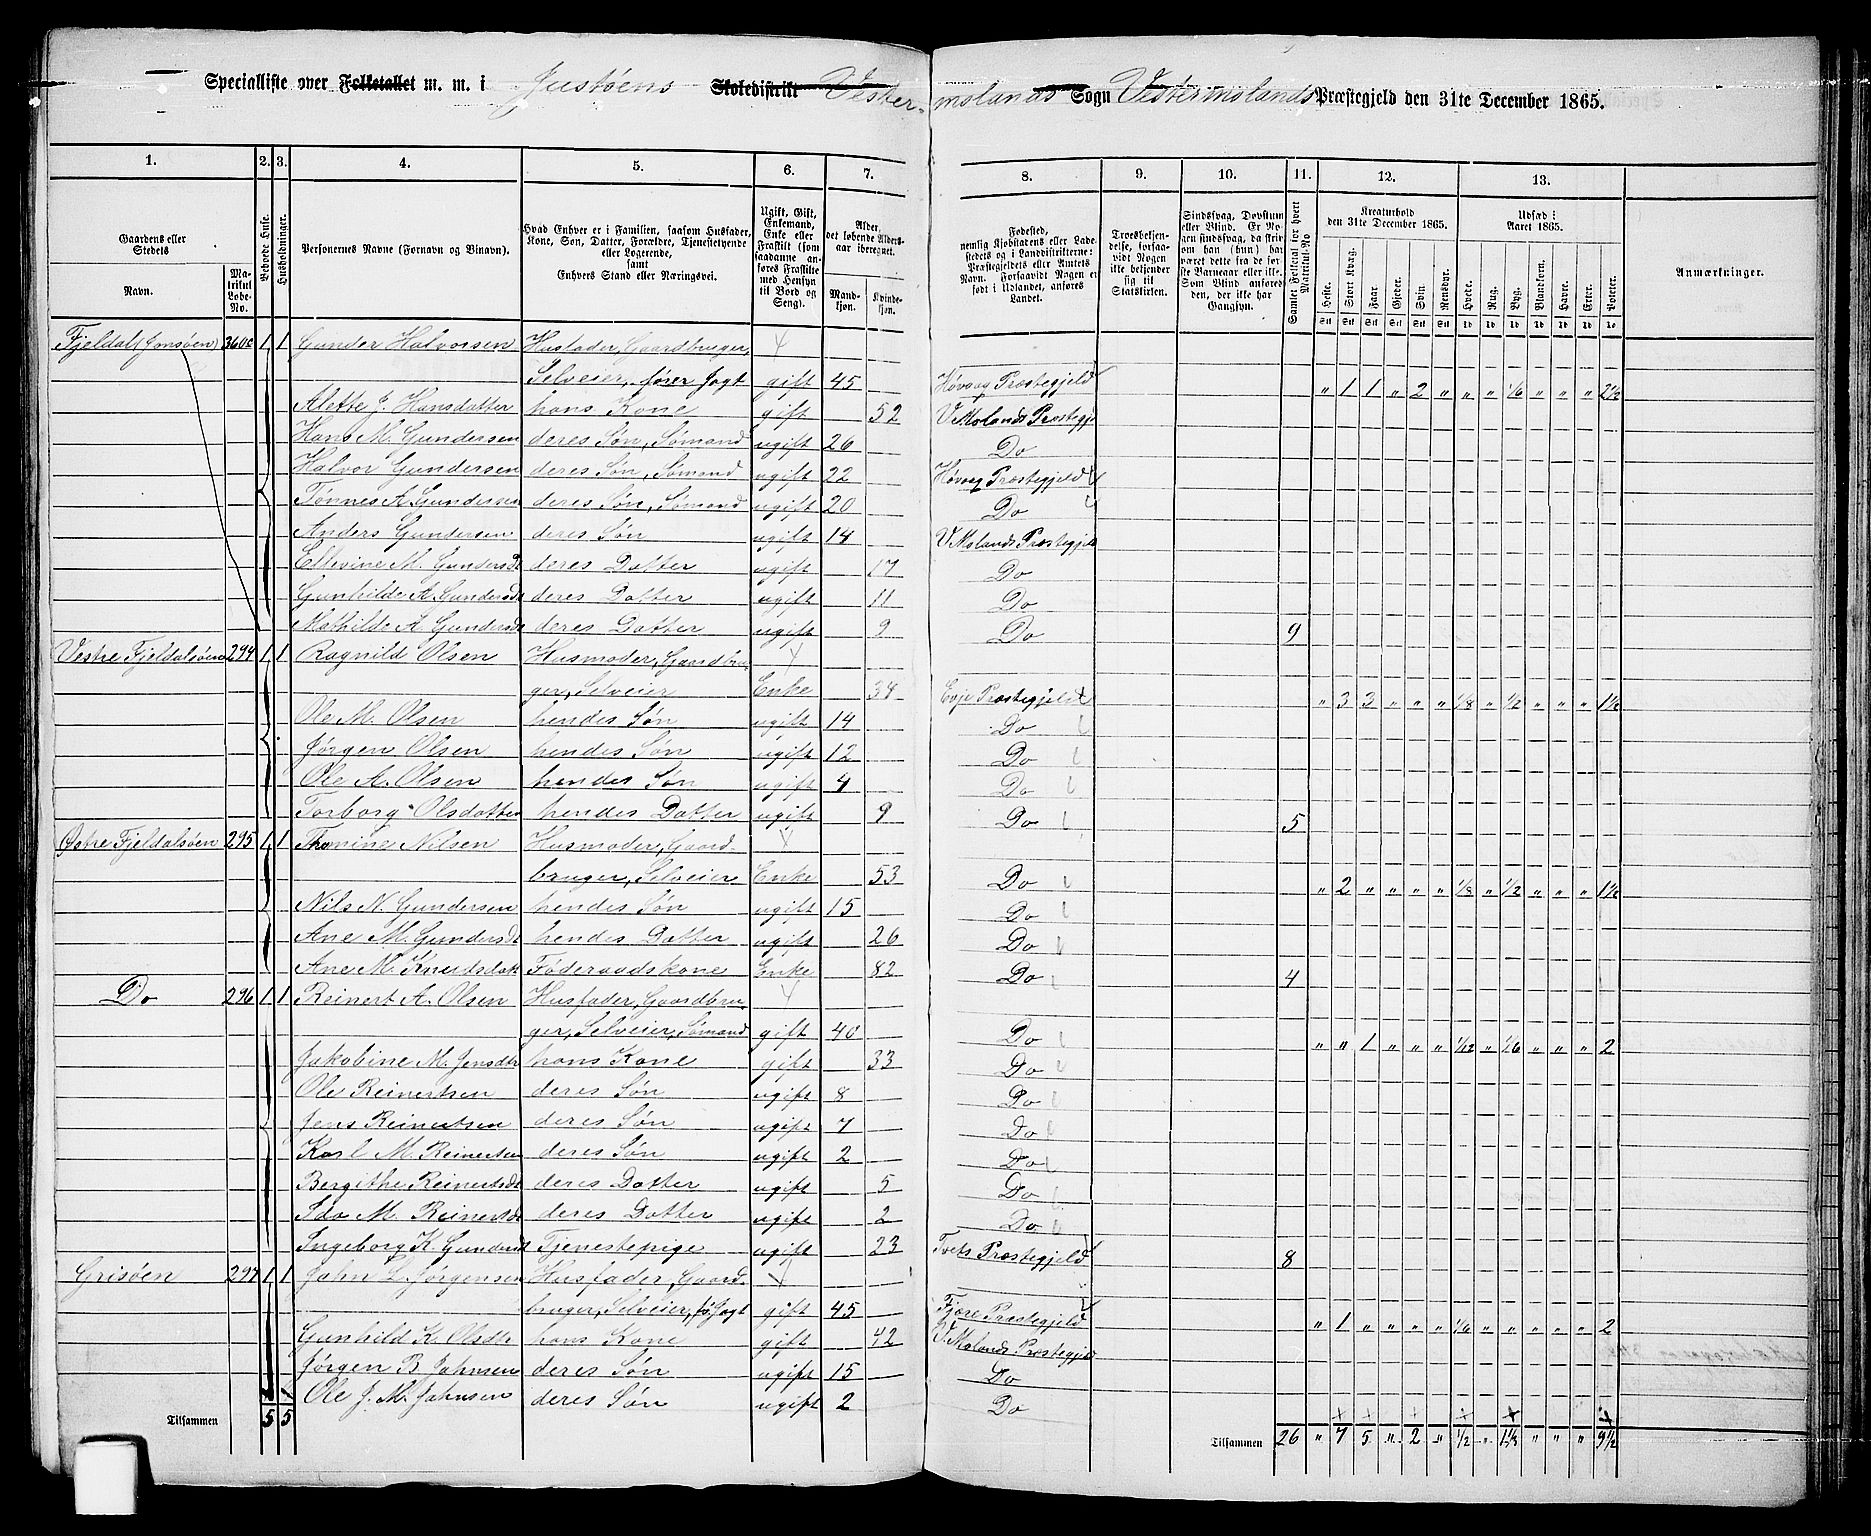 Specialliste over Folketallet m. m. i Justøens Skoledistrikt Vestermolands Sogn Vestermolands Præstegjeld den 31te December 1865.
1. 2. 3. 4. 5. 6. 7. 8. 9. 10. 11. 12. 13.
Gaardens eller Stedets
Navn.
Matrikul Løbe-No.
Beboede Huse.
Husholdninger.
Personernes Navne (Fornavn og Binavn).
Hvad Enhver er i Familien, saasom Husfader, Kone, Søn, Datter, Forældre, Tjenestetyende eller Logerende, samt Enhvers Stand eller Næringsvei.
Ugift, Gift, Enkemand, Enke eller Fraskilt (som saadanne anføres Fraskilte med Hensyn til Bord og Seng).
Alder, det løbende Aldersaar iberegnet.
Mandkjøn.
Kvindekjøn.
Fødested, nemlig Kjøbstadens eller Ladestedets og i Landdistrikterne: Præstegjeldets eller Amtets Navn. Forsaavidt Nogen er født i Udlandet, anføres Landet.
Troesbekjendelse, forsaavidt Nogen ikke bekjender sig til Statskirken.
Sindssvag, Døvstum eller Blind.
Kreaturhold den 31te December 1865.
Heste. Stort Kvæg. Faar. Gjeder. Svin. Rensdyr.
Udsæd i Aaret 1865.
Hvede. Rug. Byg. Blandkorn. Havre. Erter. Poteter.
Anmærkninger.
Fjeldal (Jonsøen) 360c 1 1 Gunder Halvorsen Husfader, Gaardbruger,
Selveier, fører Jagt gift 45 Høvaag Præstegjeld " 1 1 " 2 " " " 1/6 " " " 2 1/2
Alette J. Hansdatter hans Kone gift 52 V Molands Præstegj
Hans M. Gundersen deres Søn, Sømand ugift 26 Do
Halvor Gundersen deres Søn, Sømand ugift 22 Høvaag Præstegjeld
Tønnes A. Gundersen deres Søn, Sømand ugift 20 Do
Anders Gundersen deres Søn ugift 14 V Molands Præstegjeld
Ellevine M. Gundersdt deres Datter ugift 17 Do
Gunhilde A. Gundersdt deres Datter ugift 11 Do
Mathilde A. Gundersdt deres Datter ugift 9 Do 9
Vestre Fjeldalsøen 294 1 1 Ragnild Olsen Husmoder, Gaardbru-
ger, Selveier Enke 34 Evje Præstegjeld " 3 3 " " " 1/8 " 1/2 " " " 1 1/2
Ole M. Olsen hendes Søn ugift 14 Do
Jørgen Olsen hendes Søn ugift 12 Do
Ole A. Olsen hendes Søn ugift 4 Do
Torborg Olsdatter hendes Datter ugift 9 Do 5
Østre Fjeldalsøen 295 1 1 Thomine Nilsen Husmoder, Gaard-
bruger, Selveier Enke 53 Do " 2 " " " " 1/8 " 1/2 " " " 1 1/2
Nils N. Gundersen hendes Søn ugift 15 Do
Ane M. Gundersdt hendes Datter ugift 26 Do
Ane M. Knudsdatt Føderaadskone Enke 82 Do 4
Do 296 1 1 Reinert A. Olsen Husfader, Gaardbru-
ger, Selveier, Sømand gift 40 Do " " 1 " " " 1/12 " 1/6 " " " 2
Jakobine M. Jensdtr hans Kone gift 33 Do
Ole Reinertsen deres Søn ugift 8 Do
Jens Reinertsen deres Søn ugift 7 Do
Karl M. Reinertsen deres Søn ugift 2 Do
Bergithe Reinertsdt deres Datter ugift 5 Do
Ida M. Reinertsdt deres Datter ugift 2 Do
Ingeborg K. Gundersdt Tjenestepige ugift 23 Tvets Præstegjeld 8
Grisøen 297 1 1 Jahn L. Jørgensen Husfader, Gaard-
bruger, Selveier, fø. Jagt gift 45 Fjære Præstegjeld " 1 " " " " 1/6 " " " " " 2
Gunhild K. Olsdtr hans Kone gift 42 V Molands Præstegjeld
Jørgen B. Jahnsen deres Søn ugift 15 Do
Ole J. M. Jahnsen deres Søn ugift 2 Do
Tilsammen 5 5 Tilsammen 26 " 7 5 " 2 " 1/2 " 1 1/3 " " " 9 1/2